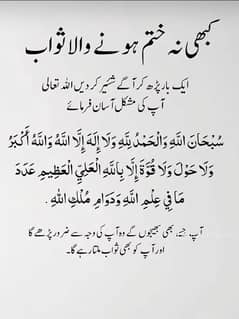 کبھی نہ ختم ہونے والا ثواب
ایک بار پڑھ کر آگے شئیر کر دیں اللہ تعالی
آپ کی مشکل آسان فرمائے
سُبْحَانَ اللَّهِ وَالْحَمْدُ لِلَّهِ وَلَا إِلَهَ إِلَّا اللَّهُ وَاللَّهُ أَكْبَرُ
وَلَا حَوْلَ وَلَا قُوَّةَ إِلَّا بِاللَّهِ الْعَلِيِّ الْعَظِيمِ عَدَدَ
مَا فِي عِلْمِ اللَّهِ وَدَوَامِ مُلْكِ اللهِ .
آپ جسے بھی بھیجوں گے وہ آپ کی وجہ سے ضرور پڑھے گا
اور آپ کو بھی ثواب ملتا رہے گا۔